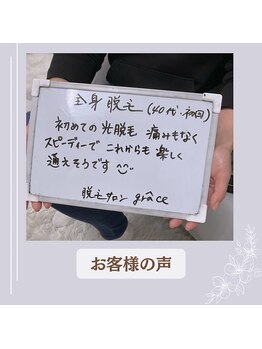 全身脱毛 (40代・初回)
初めての光脱毛 痛みもなく
スピーディーで これからも 楽しく
通えそうです
脱毛サロン grâce
お客様の声